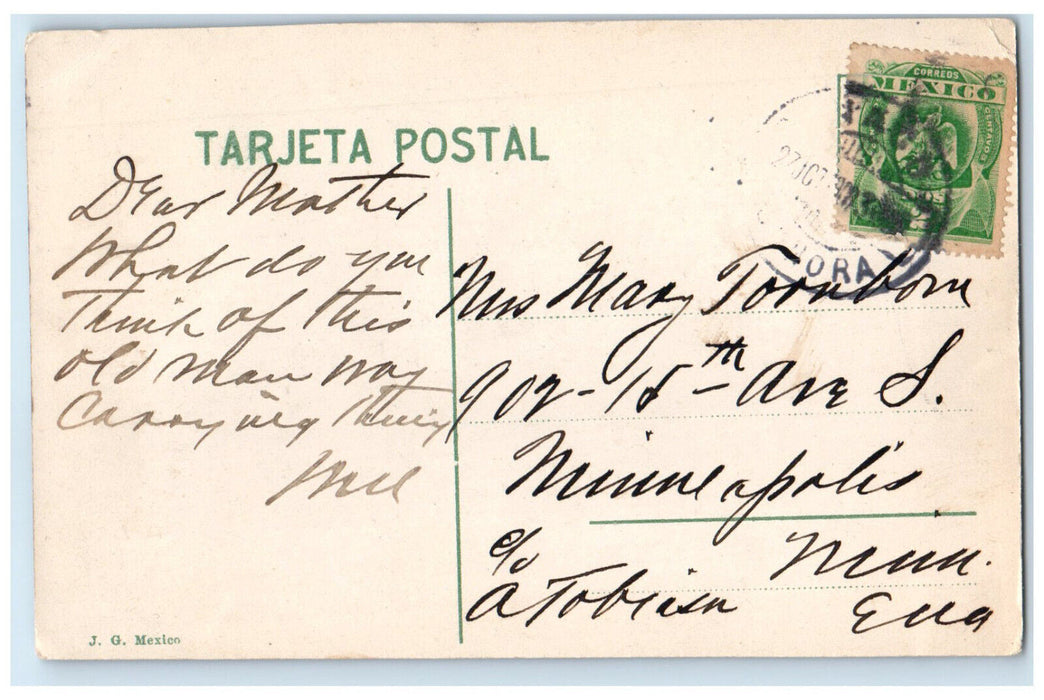 TARJETA POSTAL
CORREOS
MEXICO
CENTAVOS
27 OCT
ORA
Dear Mother
What do you
Think of this
old man way
Carrying things
Mrs Mary Tornborn
902-15th Ave S.
Minneapolis
Minn.
c/o
A Tobiasn
J. G. Mexico